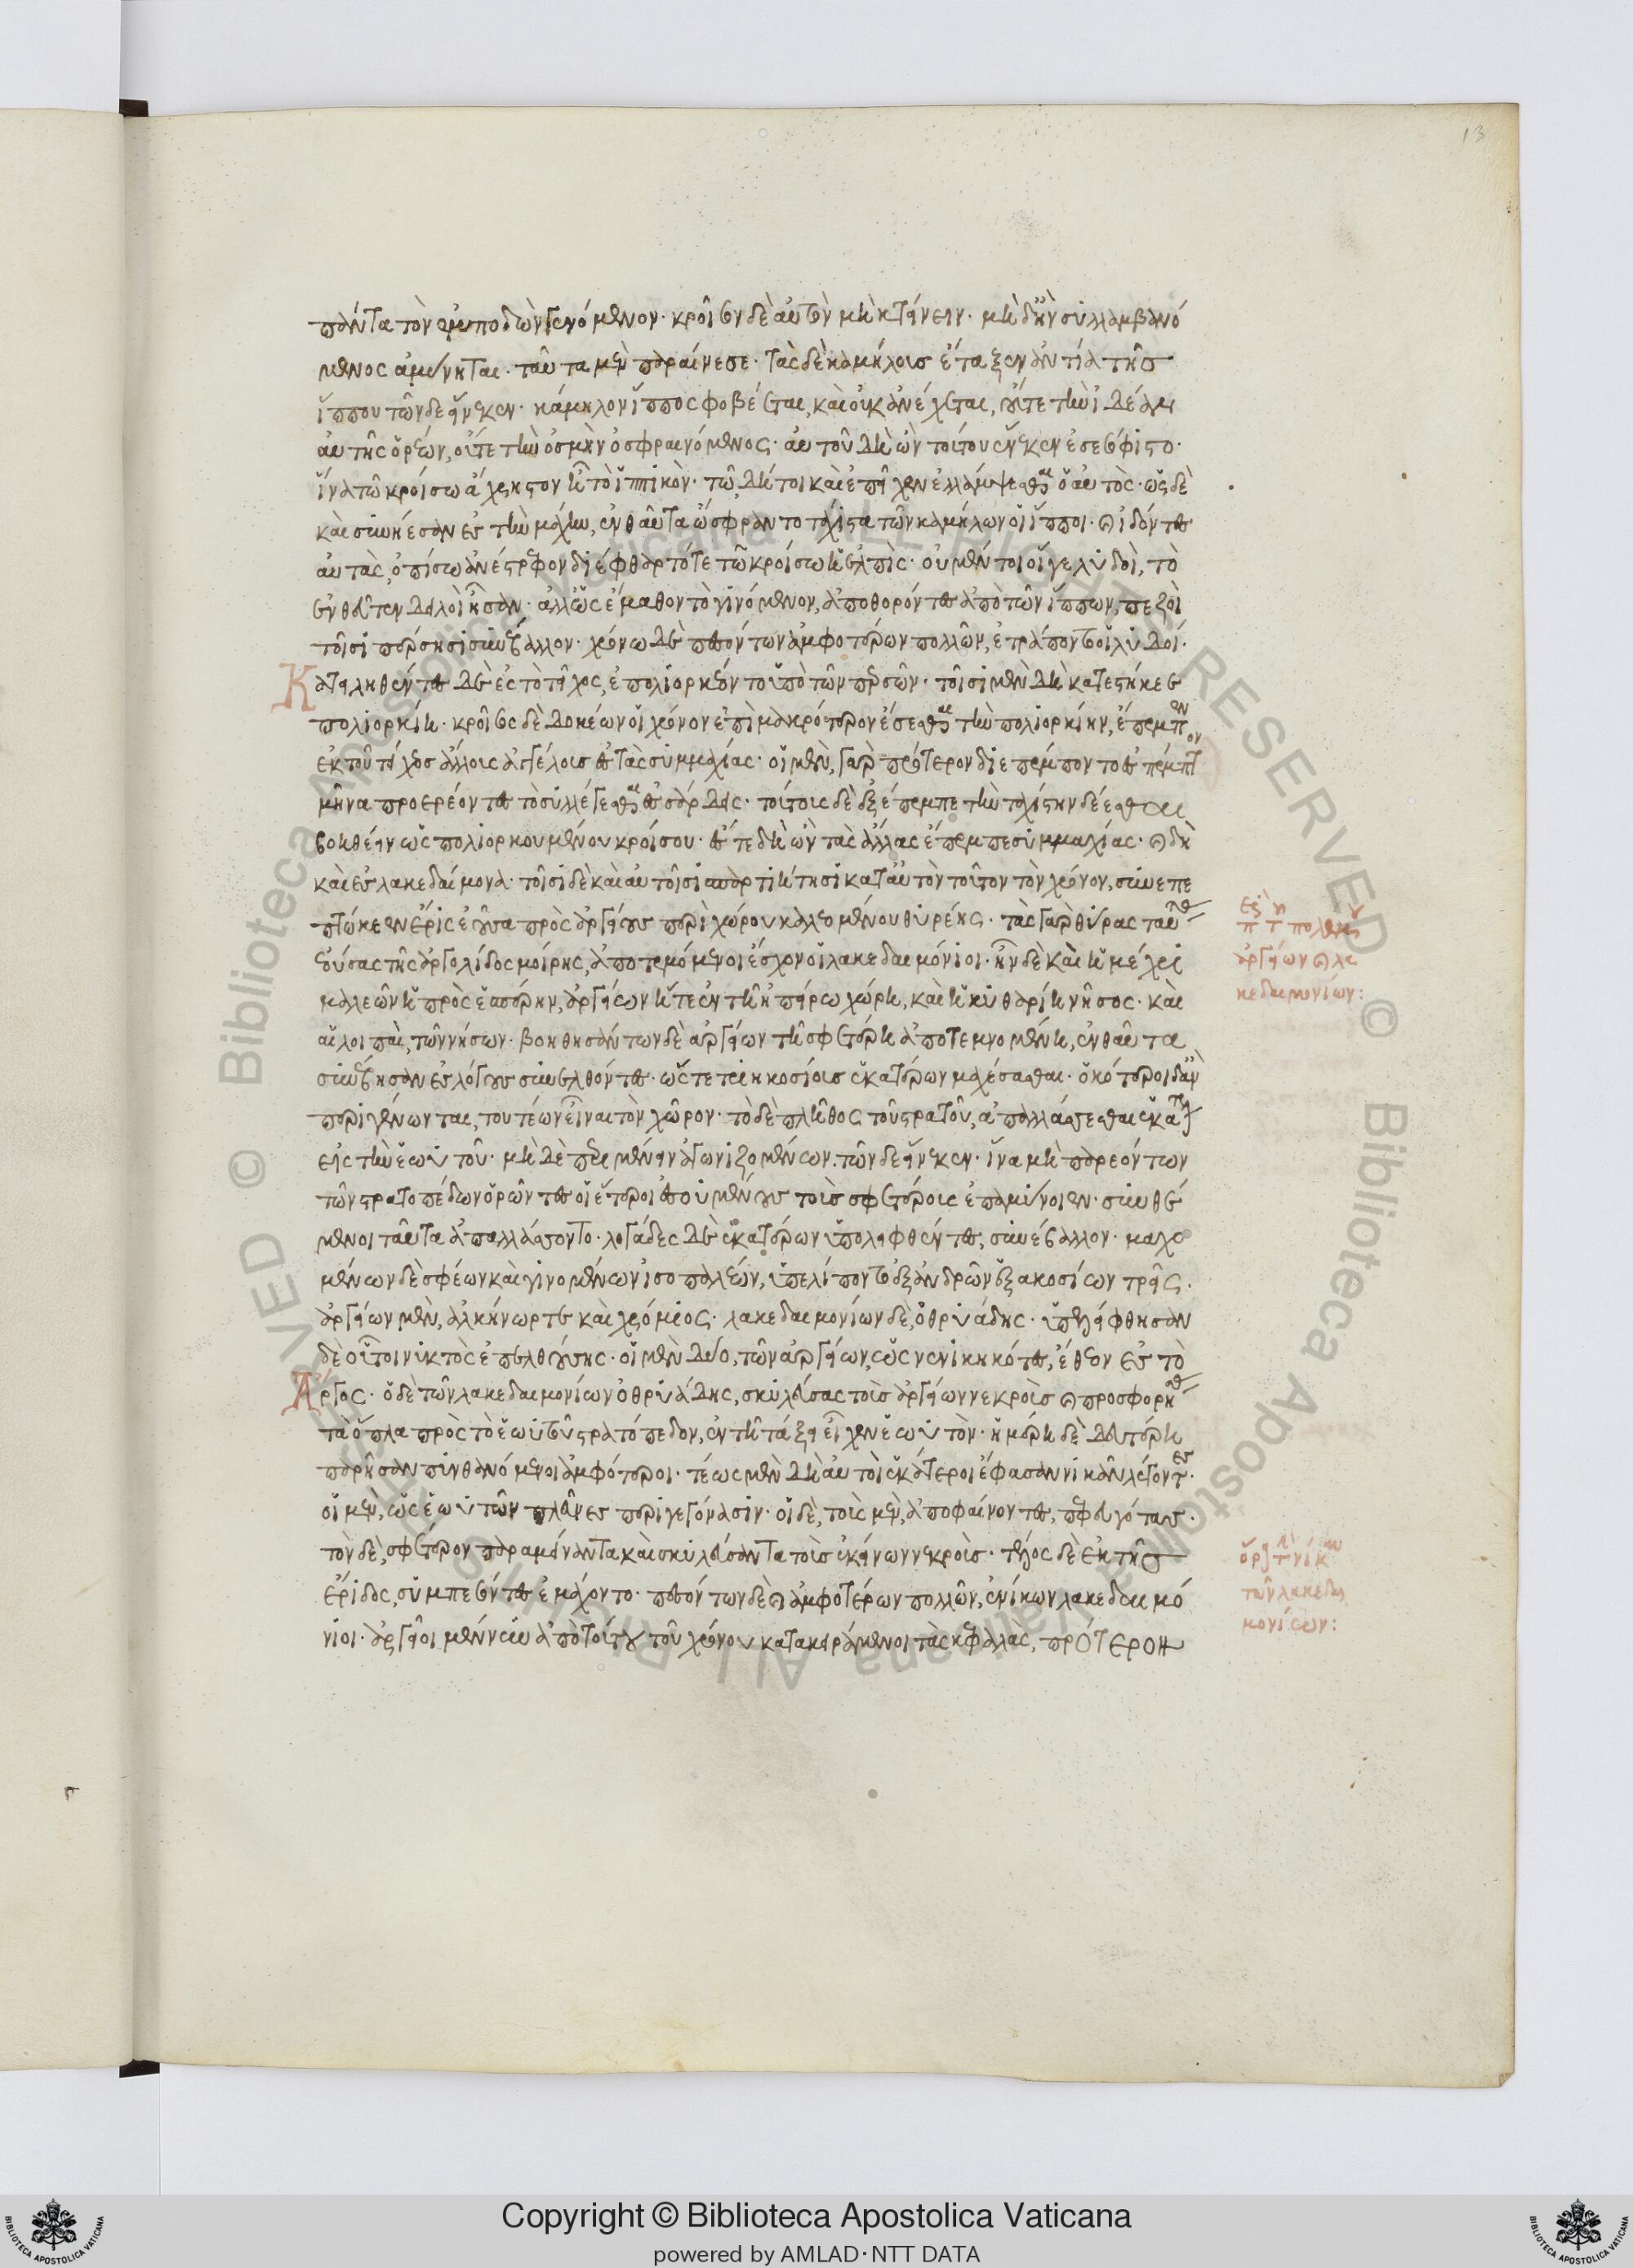 13
πάντα τὸν ἐμποδὼν γενόμενον· κροῖσον δὲ αὐτὸν μὴ κτείνειν· μὴ δὲ ἢν συλλαμβανό
μενος ἀμύνηται· ταῦτα μὲν παραίνεσε· τὰς δὲ καμήλους ἔταξεν ἀντία τῆς
ἵππου τῶνδε εἵνεκεν· κάμηλον ἵππος φοβέεται, καὶ οὐκ ἀνέχεται, οὔτε τὴν ἰδέαν
αὐτῆς ὁρέων, οὔτε τὴν ὀσμὴν ὀσφραινόμενος· αὐτοῦ δὴ ὦν τούτου εἵνεκεν ἐσεσόφιστο·
ἵνα τῶ κροίσω ἄχρηστον ἦ τὸ ἱππικὸν· τῶ δή τοι καὶ ἐπεῖχεν ἐλλάμψεσθαι ὁ αὐτὸς· ὡς δὲ
καὶ συνήεσαν ἐς τὴν μάχην, ἐνθαῦτα ὤσφραντο τάχιστα τῶν καμήλων οἱ ἵπποι· καὶ ἰδόντες
αὐτὰς, ὀπίσω ἀνέστρεφον διέφθαρτό τε τῶ κροίσω ἡ ἐλπὶς· οὐ μέντοι οἵ γε λυδοὶ, τὸ
ἐνθεῦτεν δειλοὶ ἦσαν· ἀλλ' ὡς ἔμαθον τὸ γινόμενον, ἀποθορόντες ἀπὸ τῶν ἵππων, πεζοὶ
τοῖσι πέρσησι συνέβαλλον· χρόνω δὲ πεσόντων ἀμφοτέρων πολλῶν, ἐτράποντο οἱ λυδοί·
Κατειληθέντες δὲ ἐς τὸ τεῖχος, ἐπολιορκέοντο ὑπὸ τῶν περσέων· τοῖσι μὲν δὴ κατεστήκεε
πολιορκίη· κροῖσος δὲ δοκέων οἱ χρόνον ἐπὶ μακρότερον ἔσεσθαι τὴν πολιορκίην, ἔπεμπεν
ἐκ τοῦ τείχεος ἄλλους ἀγγέλους ἐς τὰς συμμαχίας· οἱ μὲν γὰρ πρότερον διεπέμποντο ἐς πέμπτον
μῆνα προερέοντες τὸ συλλέγεσθαι ἐς σάρδις· τούτους δὲ ἐξέπεμπε τὴν ταχίστην δέεσθαι
βοηθέειν ὡς πολιορκουμένου κροίσου· ἔς τε δὴ ὦν τὰς ἄλλας ἔπεμπε συμμαχίας· καὶ δὴ
καὶ ἐς λακεδαίμονα· τοῖσι δὲ καὶ αὐτοῖσι σπαρτιήτησι κατ' αὐτὸν τοῦτον τὸν χρόνον, συνεπε
πτώκεεν ἔρις ἐοῦσα πρὸς ἀργείους περὶ χώρου καλεομένου θυρέης· τὰς γὰρ θυρέας ταύτας
ἐούσας τῆς ἀργολίδος μοίρης, ἀποταμόμενοι ἔσχον οἱ λακεδαιμόνιοι· ἦν δὲ καὶ ἡ μέχρι
μαλεῶν ἡ πρὸς ἑσπέρην, ἀργείων ἥ τε ἐν τῆ ἠπείρω χώρη, καὶ ἡ κυθηρίη νῆσος· καὶ
αἱ λοιπαὶ τῶν νήσων· βοηθησάντων δὲ ἀργείων τῆ σφετέρη ἀποτεμνομένη, ἐνθαῦτα
συνέβησαν ἐς λόγους συνελθόντες· ὥστε τριηκοσίους ἑκατέρων μαχέσασθαι· ὁκότεροι δ' ἂν
περιγένωνται, τουτέων εἶναι τὸν χῶρον· τὸ δὲ πλῆθος τοῦ στρατοῦ, ἀπαλλάσσεσθαι ἑκάτερον
εἰς τὴν ἑωυτοῦ· μὴ δὲ παραμένειν ἀγωνιζομένων· τῶνδε εἵνεκεν· ἵνα μὴ παρεόντων
τῶν στρατοπέδων ὁρῶντες οἱ ἕτεροι ἑσσουμένους τοὺς σφετέρους ἐπαμύνοιεν· συνθέ
μενοι ταῦτα ἀπαλλάσσοντο· λογάδες δὲ ἑκατέρων ὑπολειφθέντες, συνέβαλλον· μαχο
μένων δὲ σφέων καὶ γινομένων ἰσοπαλέων, ὑπελίποντο ἐξ ἀνδρῶν ἑξακοσίων τρεῖς·
ἀργείων μὲν, ἀλκήνωρ τε καὶ χρόμιος· λακεδαιμονίων δὲ, ὀθρυάδης· ὑπελείφθησαν
δὲ οὗτοι νυκτὸς ἐπελθούσης· οἱ μὲν δύο, τῶν ἀργείων, ὡς νενικηκότες, ἔθεον ἐς τὸ
Ἄργος· ὁ δὲ τῶν λακεδαιμονίων ὀθρυάδης, σκυλεύσας τοὺς ἀργείων νεκροὺς καὶ προσφορήσας
τὰ ὅπλα πρὸς τὸ ἑωυτοῦ στρατόπεδον, ἐν τῆ τάξει εἶχεν ἑωυτὸν· ἡμέρη δὲ δευτέρη
παρῆσαν πυνθανόμενοι ἀμφότεροι· τέως μὲν δὴ αὐτοὶ ἑκάτεροι ἔφασαν νικᾶν λέγοντες·
οἱ μὲν, ὡς ἑωυτῶν πλεῦνες περιγεγόνασιν· οἱ δὲ, τοὺς μὲν, ἀποφαίνοντες, πεφευγότας·
τὸν δὲ, σφέτερον παραμείναντα καὶ σκυλεύσαντα τοὺς ἐκείνων νεκροὺς· τέλος δὲ ἐκ τῆς
ἔριδος, συμπεσόντες ἐμάχοντο· πεσόντων δὲ καὶ ἀμφοτέρων πολλῶν, ἐνίκων λακεδαιμό
νιοι· ἀργεῖοι μέν νυν ἀπὸ τούτου τοῦ χρόνου κατακειράμενοι τὰς κεφαλὰς, πρότερον
ἀργείων καὶ λα
κεδαιμονίων:
τῶν λακεδαι
μονίων:
Copyright © Biblioteca Apostolica Vaticana
powered by AMLAD·NTT DATA